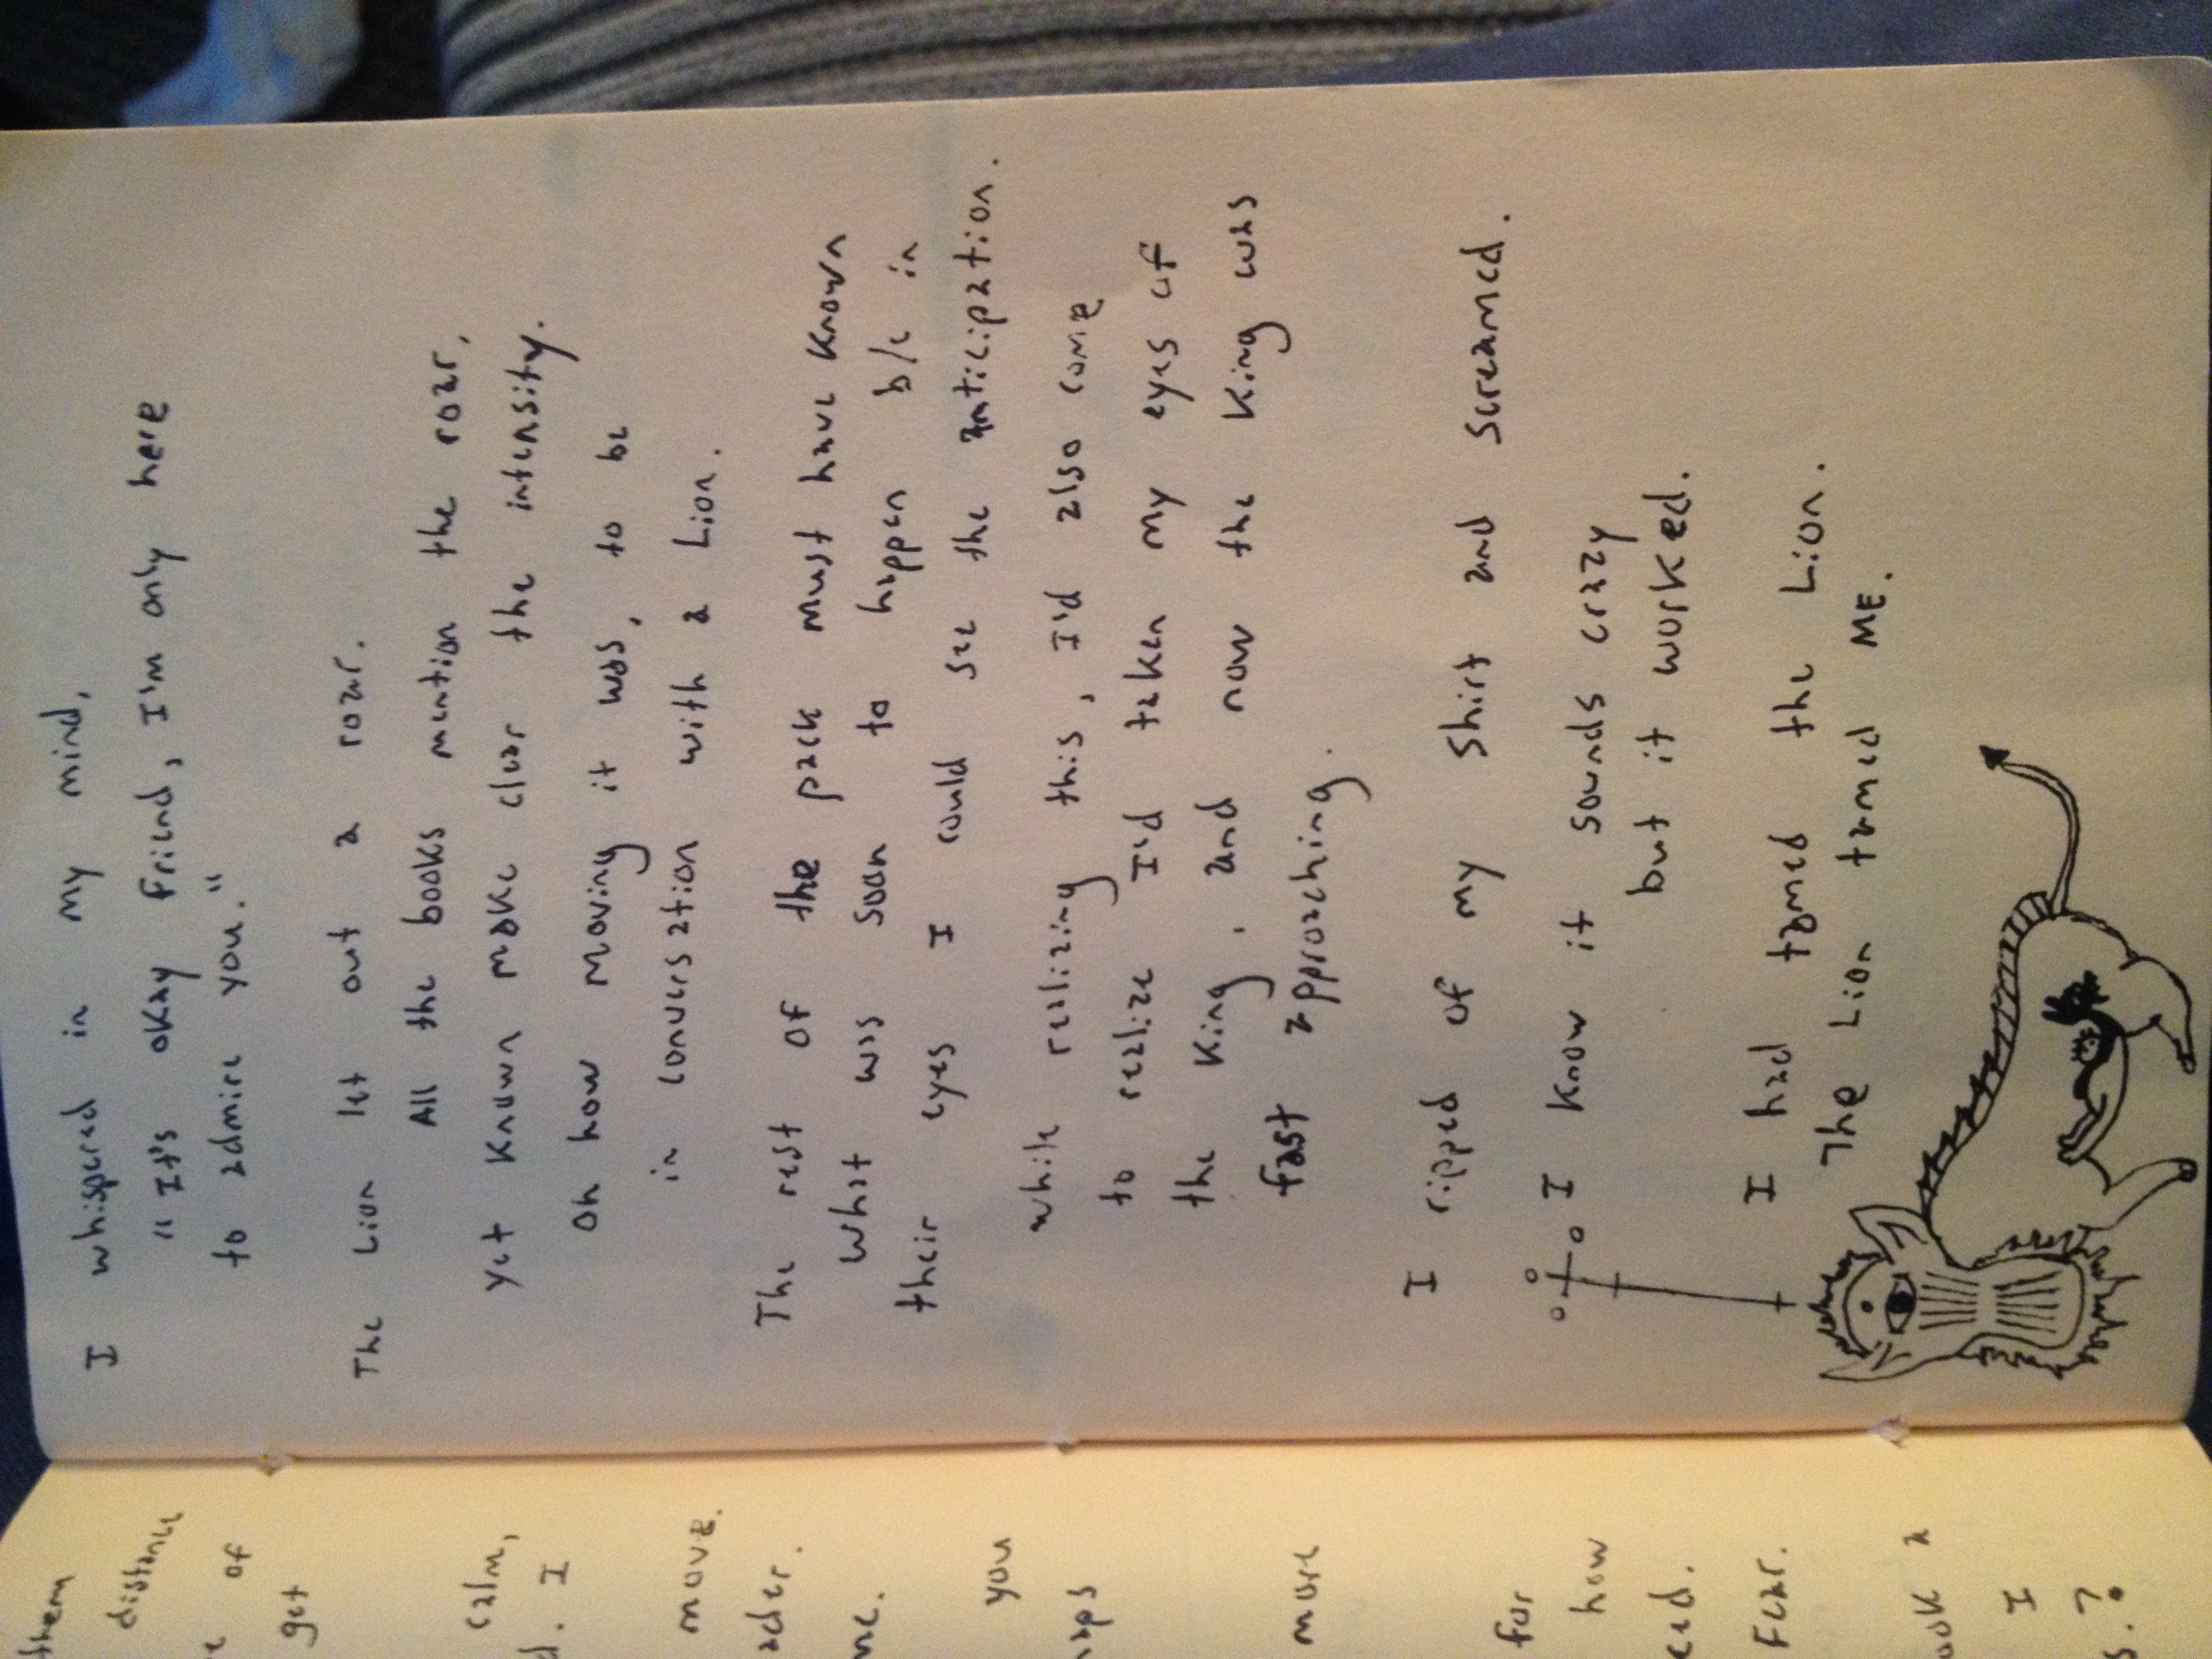 them
distance
of
get
calm,
d. I
move.
ader.
me.
you
aps
more
for
how
eed.
Fear.
ook a
I
s.?
I whispered in my mind,
"It's okay friend, I'm only here
to admire you."
The Lion let out a roar.
All the books mention the roar,
yet known make clear the intensity.
Oh how moving it was, to be
in conversation with a Lion.
The rest of the pack must have known
what was soon to happen b/c in
their eyes I could see the anticipation.
While realizing this, I'd also come
to realize I'd taken my eyes of
the King, and now the King was
fast approaching.
I ripped of my shirt and screamed.
I know it sounds crazy
but it worked.
I had tamed the Lion.
The Lion tamed ME.